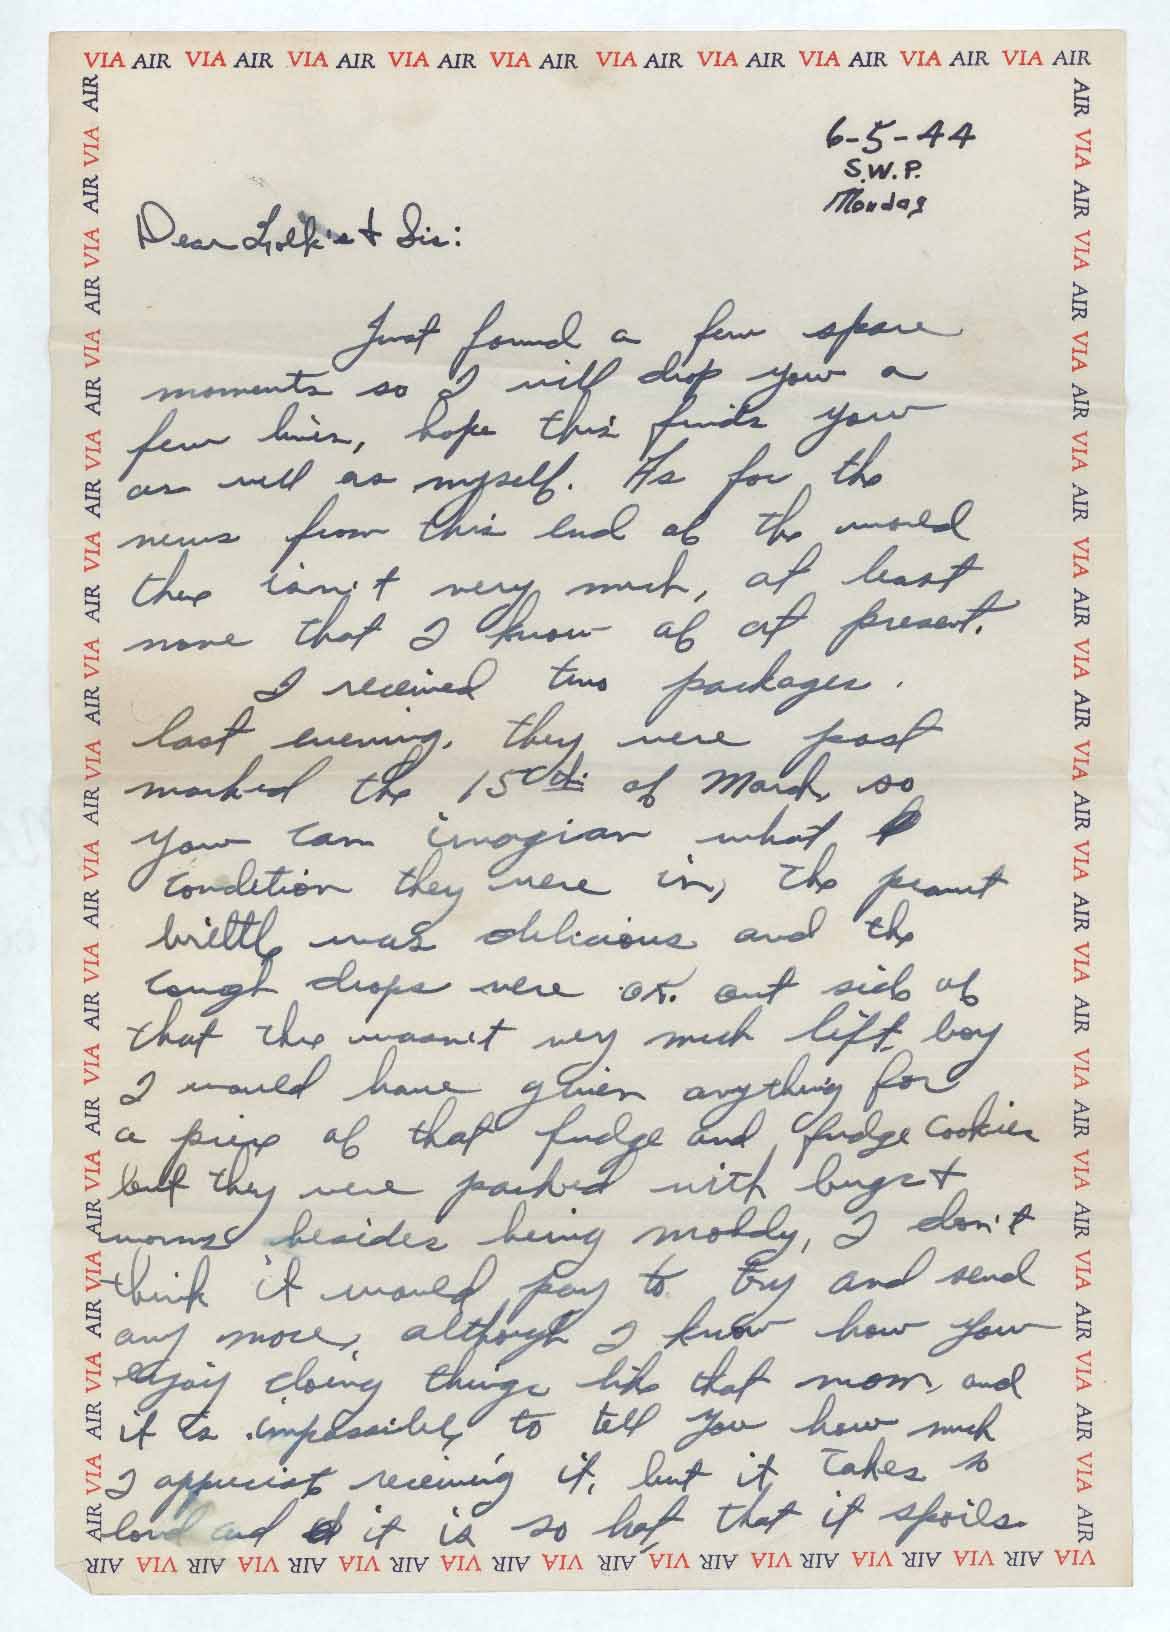 VIA AIR VIA AIR VIA AIR VIA AIR VIA AIR VIA AIR VIA AIR VIA AIR VIA AIR VIA AIR
6-5-44
S.W.P.
Monday
Dear Folk's & Sis:
Just found a few spare
moments so I will drop you a
few lines, hope this finds you
as well as myself. As for the
news from this end of the world
there isn't very much, at least
none that I know of at present.
I received two packages
last evening. they were post
marked the 15th of March, so
you can imagian what
condetion they were in, the peanut
brittle was delicious and the
cough drops were OK. out side of
that there wasn't very much left, boy
I would have given anything for
a piece of that fudge and fudge cookies
but they were packed with bugs &
worms besides being moldy, I don't
think it would pay to try and send
any more, although I know how you
enjoy doing things like that mom, and
it is impossible, to tell you how much
I appreciate receiving it, but it takes so
and it is so hot, that it spoils.
VIA AIR VIA AIR VIA AIR VIA AIR VIA AIR VIA AIR VIA AIR VIA AIR VIA AIR VIA AIR